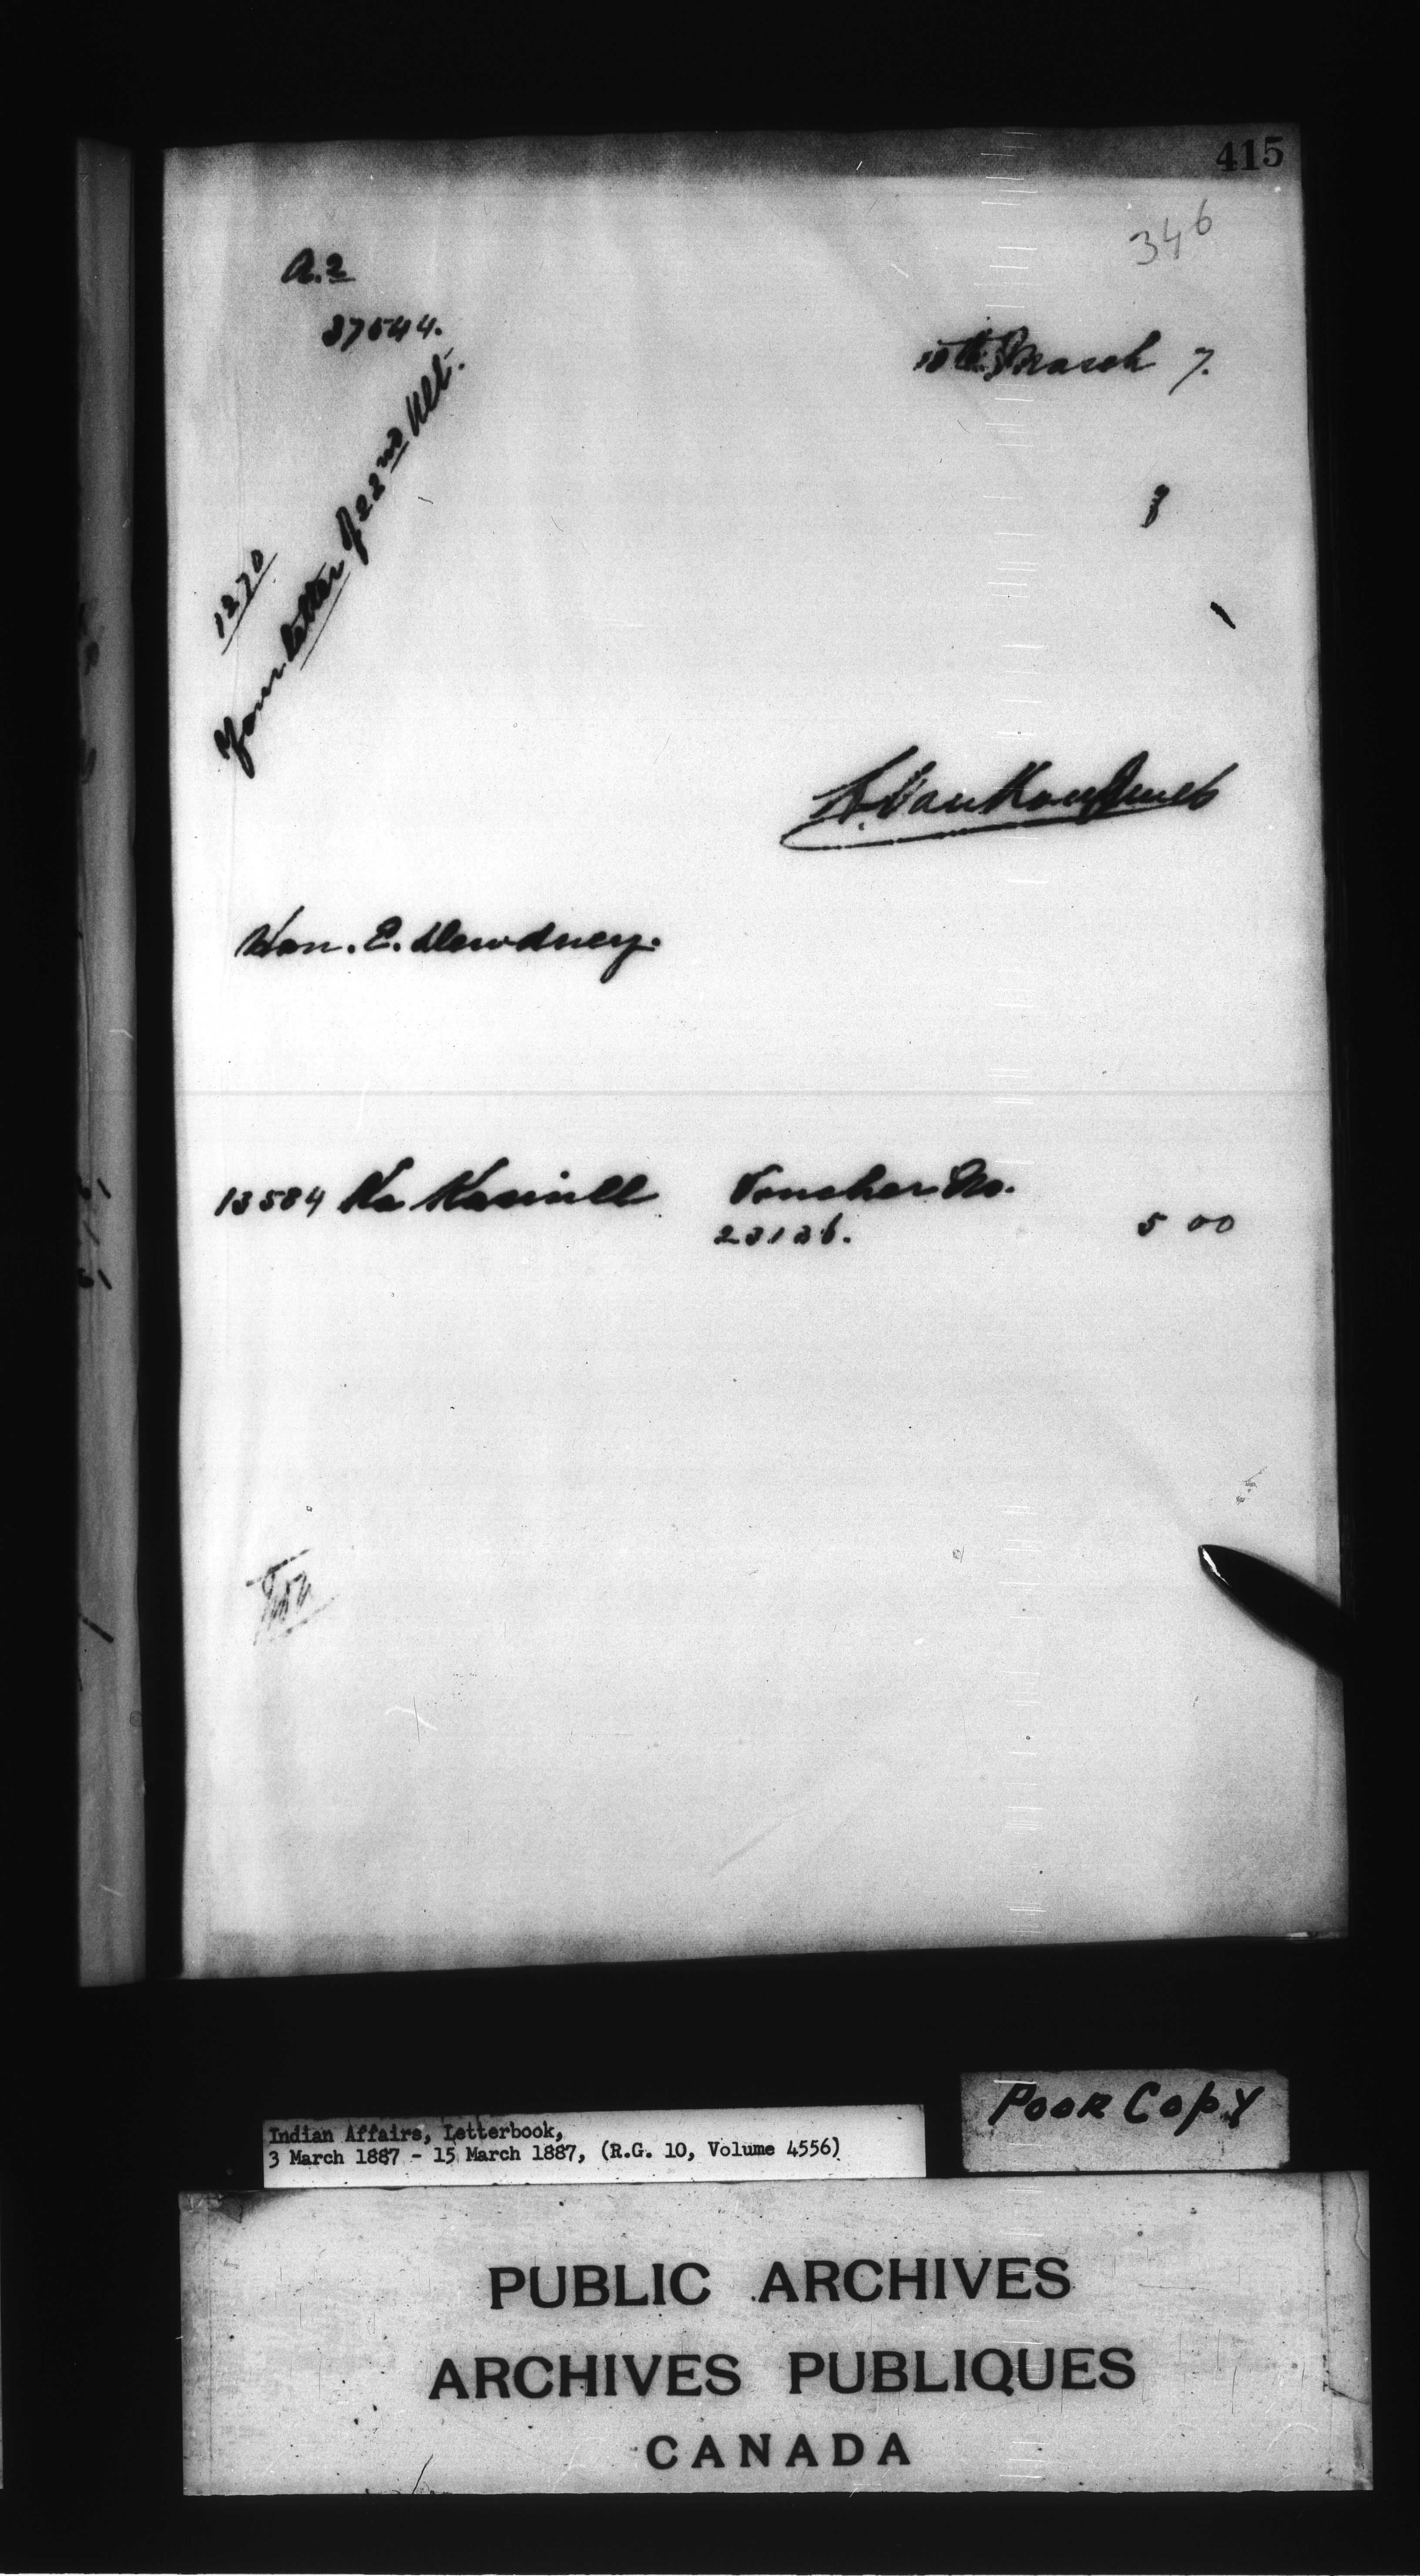 415
346
A. 2
37544.
10th March 7.
1270
Your letter of 22nd Ult.
L. VanKoughnet
Hon. E. Dewdney.
13584 Voucher No.
23136. 5 00
Poor Copy
Indian Affairs, Letterbook,
3 March 1887 - 15 March 1887, (R.G. 10, Volume 4556)
PUBLIC ARCHIVES
ARCHIVES PUBLIQUES
CANADA